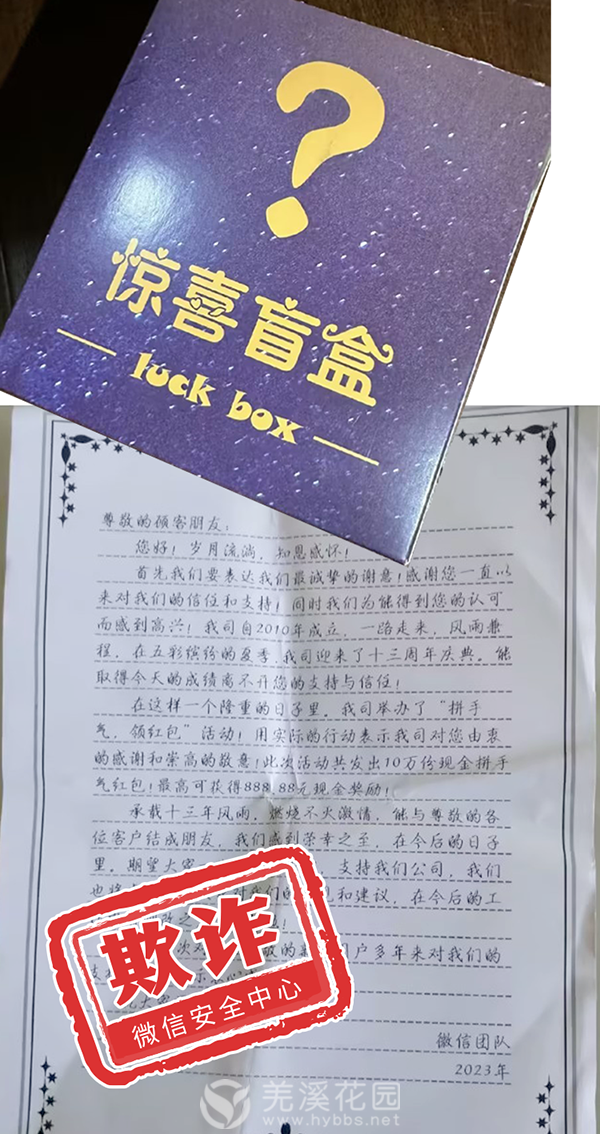 ?
惊喜盲盒
luck box
尊敬的顾客朋友：
您好！岁月流淌，知恩感怀！
首先我们要表达我们最诚挚的谢意！感谢您一直以
来对我们的信任和支持！同时我们为能得到您的认可
而感到高兴！我司自2010年成立，一路走来，风雨兼
程，在五彩缤纷的夏季，我司迎来了十三周年庆典。能
取得今天的成绩离不开您的支持与信任！
在这样一个隆重的日子里，我司举办了“拼手
气，领红包”活动！用实际的行动表示我司对您由衷
的感谢和崇高的敬意！此次活动共发出10万份现金拼手
气红包！最高可获得888.88元现金奖励！
承载十三年风雨，燃烧不灭激情，能与尊敬的各
位客户结成朋友，我们感到荣幸之至，在今后的日子
里，期望大家 支持我们公司，我们
也将 对我们的 和建议，在今后的工
次对 敬的 户多年来对我们的
微信团队
2023年
欺诈
微信安全中心
羌溪花园
www.hybbs.net